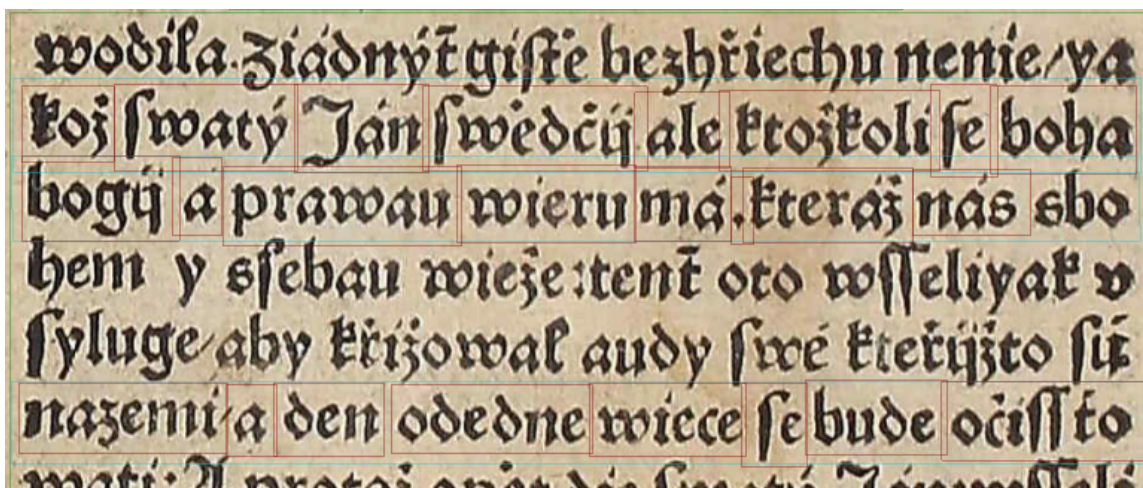 wodila. Ziádnýť gistě bez hřiechu nenie / ya
kož swatý Ján swědčij ale ktožkoli se boha
bogij á prawau wieru má. kteráž nás sbo
hem y sſebau wieže : tenť oto wſſeliyak v
syluge / aby křižowal audy swé kteřijžto sú
nazemi / a den odedne wiece se bude očiſſťo